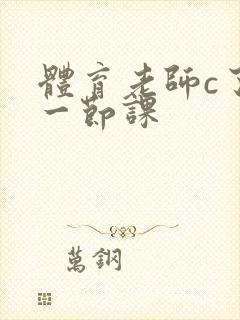 體育老師c了
一節課
萬鋼